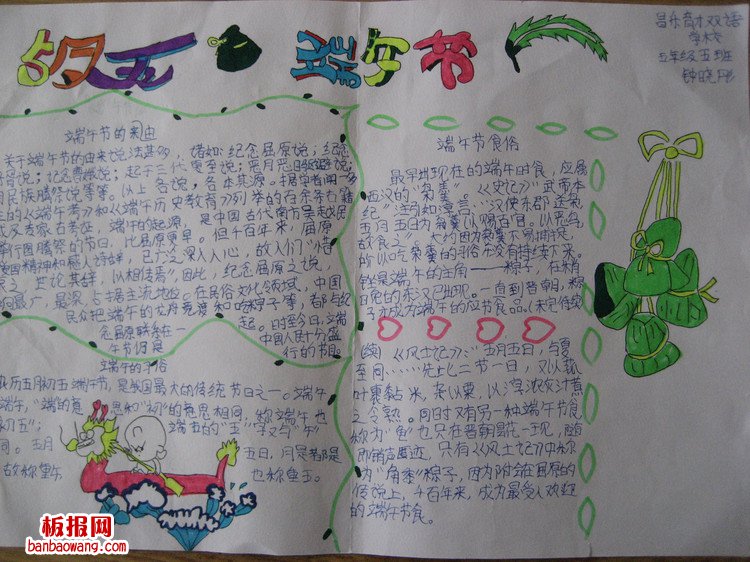 端午节
昌乐育才双语
学校
五年级五班
钟晓彤
端午节的来由
关于端午节的由来说法甚多，诸如：纪念屈原说；纪念
胥说；纪念曹娥说；起于三代夏至说；恶月恶日驱避说；
民族图腾祭说等等。以上各说，各本其源。据学者闻一多
的《端午考》和《端午历史教育》列举的百余条古籍
及专家考古考证，端午的起源，是中国古代南方吴越民
举行图腾祭的节日，比屈原更早。但千百年来，屈原
爱国精神和感人诗辞，已广泛深入人心，故人们“惜
哀之，世论其辞，以相传焉”因此，纪念屈原之说，
响最广，最深，占据主流地位。在民俗文化领域，中国
民众把端午的龙舟竞渡和吃粽子等，都与纪
念屈原联系在一起。时至今日，端
午节仍是中国人民十分盛
行的节日。
端午的习俗
农历五月初五端午节，是我国最大的传统节日之一。端午
端午，“端”的意思和“初”的意思相同，称端午也
初五”；端五的“五”字又与“午”
五月
五日，月是五，日是
故称重午也称重五。
端午节食俗
最早出现在的端午时食，应属
西汉的“枭羹”《史记》“武帝本
纪”注引如淳言：“汉使东郡送枭，
五月五日为枭羹以赐百官。以恶鸟，
故食之”。大约因为枭不易捕捉，
所以吃枭羹的习俗不没有持续下来。
倒是端午的主角——粽子，在稍
旧晚的东汉出现。一直到晋朝，粽
子才成为端午的应节食品。（未完待续）
（续）《风土记》：“五月五日，与夏
至同……先此二节一日，又以菰
叶裹黏米，杂以粟，以淳浓灰汁煮
之令熟。同时又有另一种端午节食，
称为“龟”也只在晋朝昙花一现，随
即销声匿迹，只有《风土记》中称
为“角黍”粽子，因为附会在屈原的
传说上，千百年来，成为最受人欢迎
的端午节食。
板报网
banbaowang.com